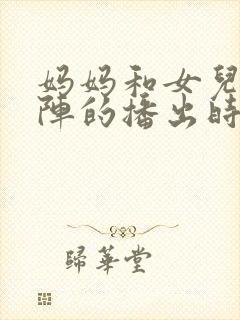 妈妈和女兒
陣的播出時
歸華堂